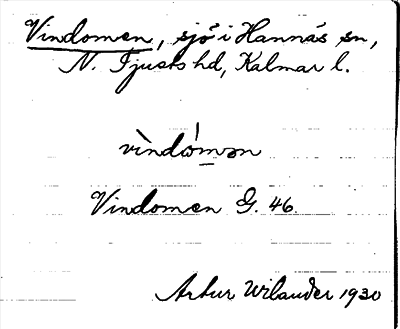 Vindomen, sjö i Hannäs sn,
N. Tjusts hd, Kalmar l.
vìndώ̲mən
Vindomen G. 46.
Artur Wilander 1930